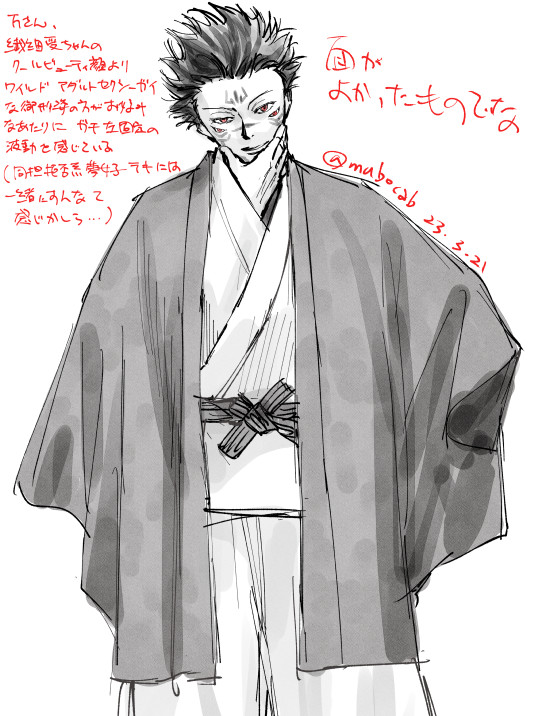 万さん、
繊細愛ちゃんの
クールビューティ顔より
ワイルド アダルトセクシーガイ
な御形姿の方がお好み
なあたりに ガチ
波動を感じている
(同担拒否系夢女子ーラキには
一緒にすんなて
感じかしら…)
面が
よかったものでな
@mabocab 23.3.21